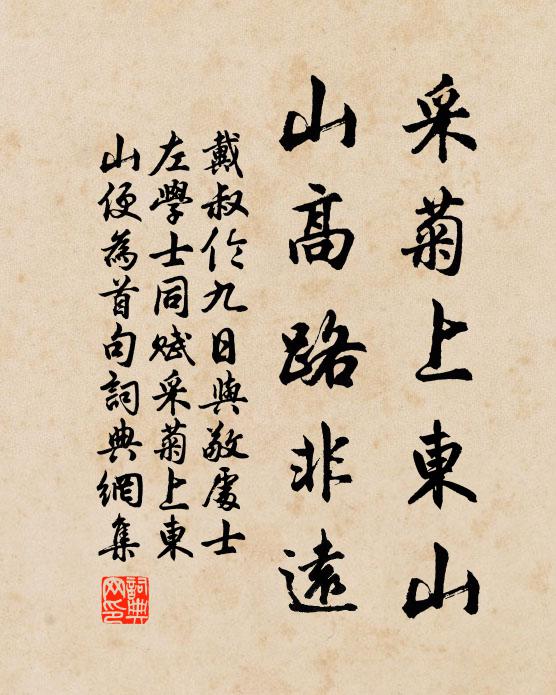 采菊上東山
山高路非遠
戴叔伦九日與敬處士
左學士同賦采菊上東
山便為首句詞典網集
詞典網印